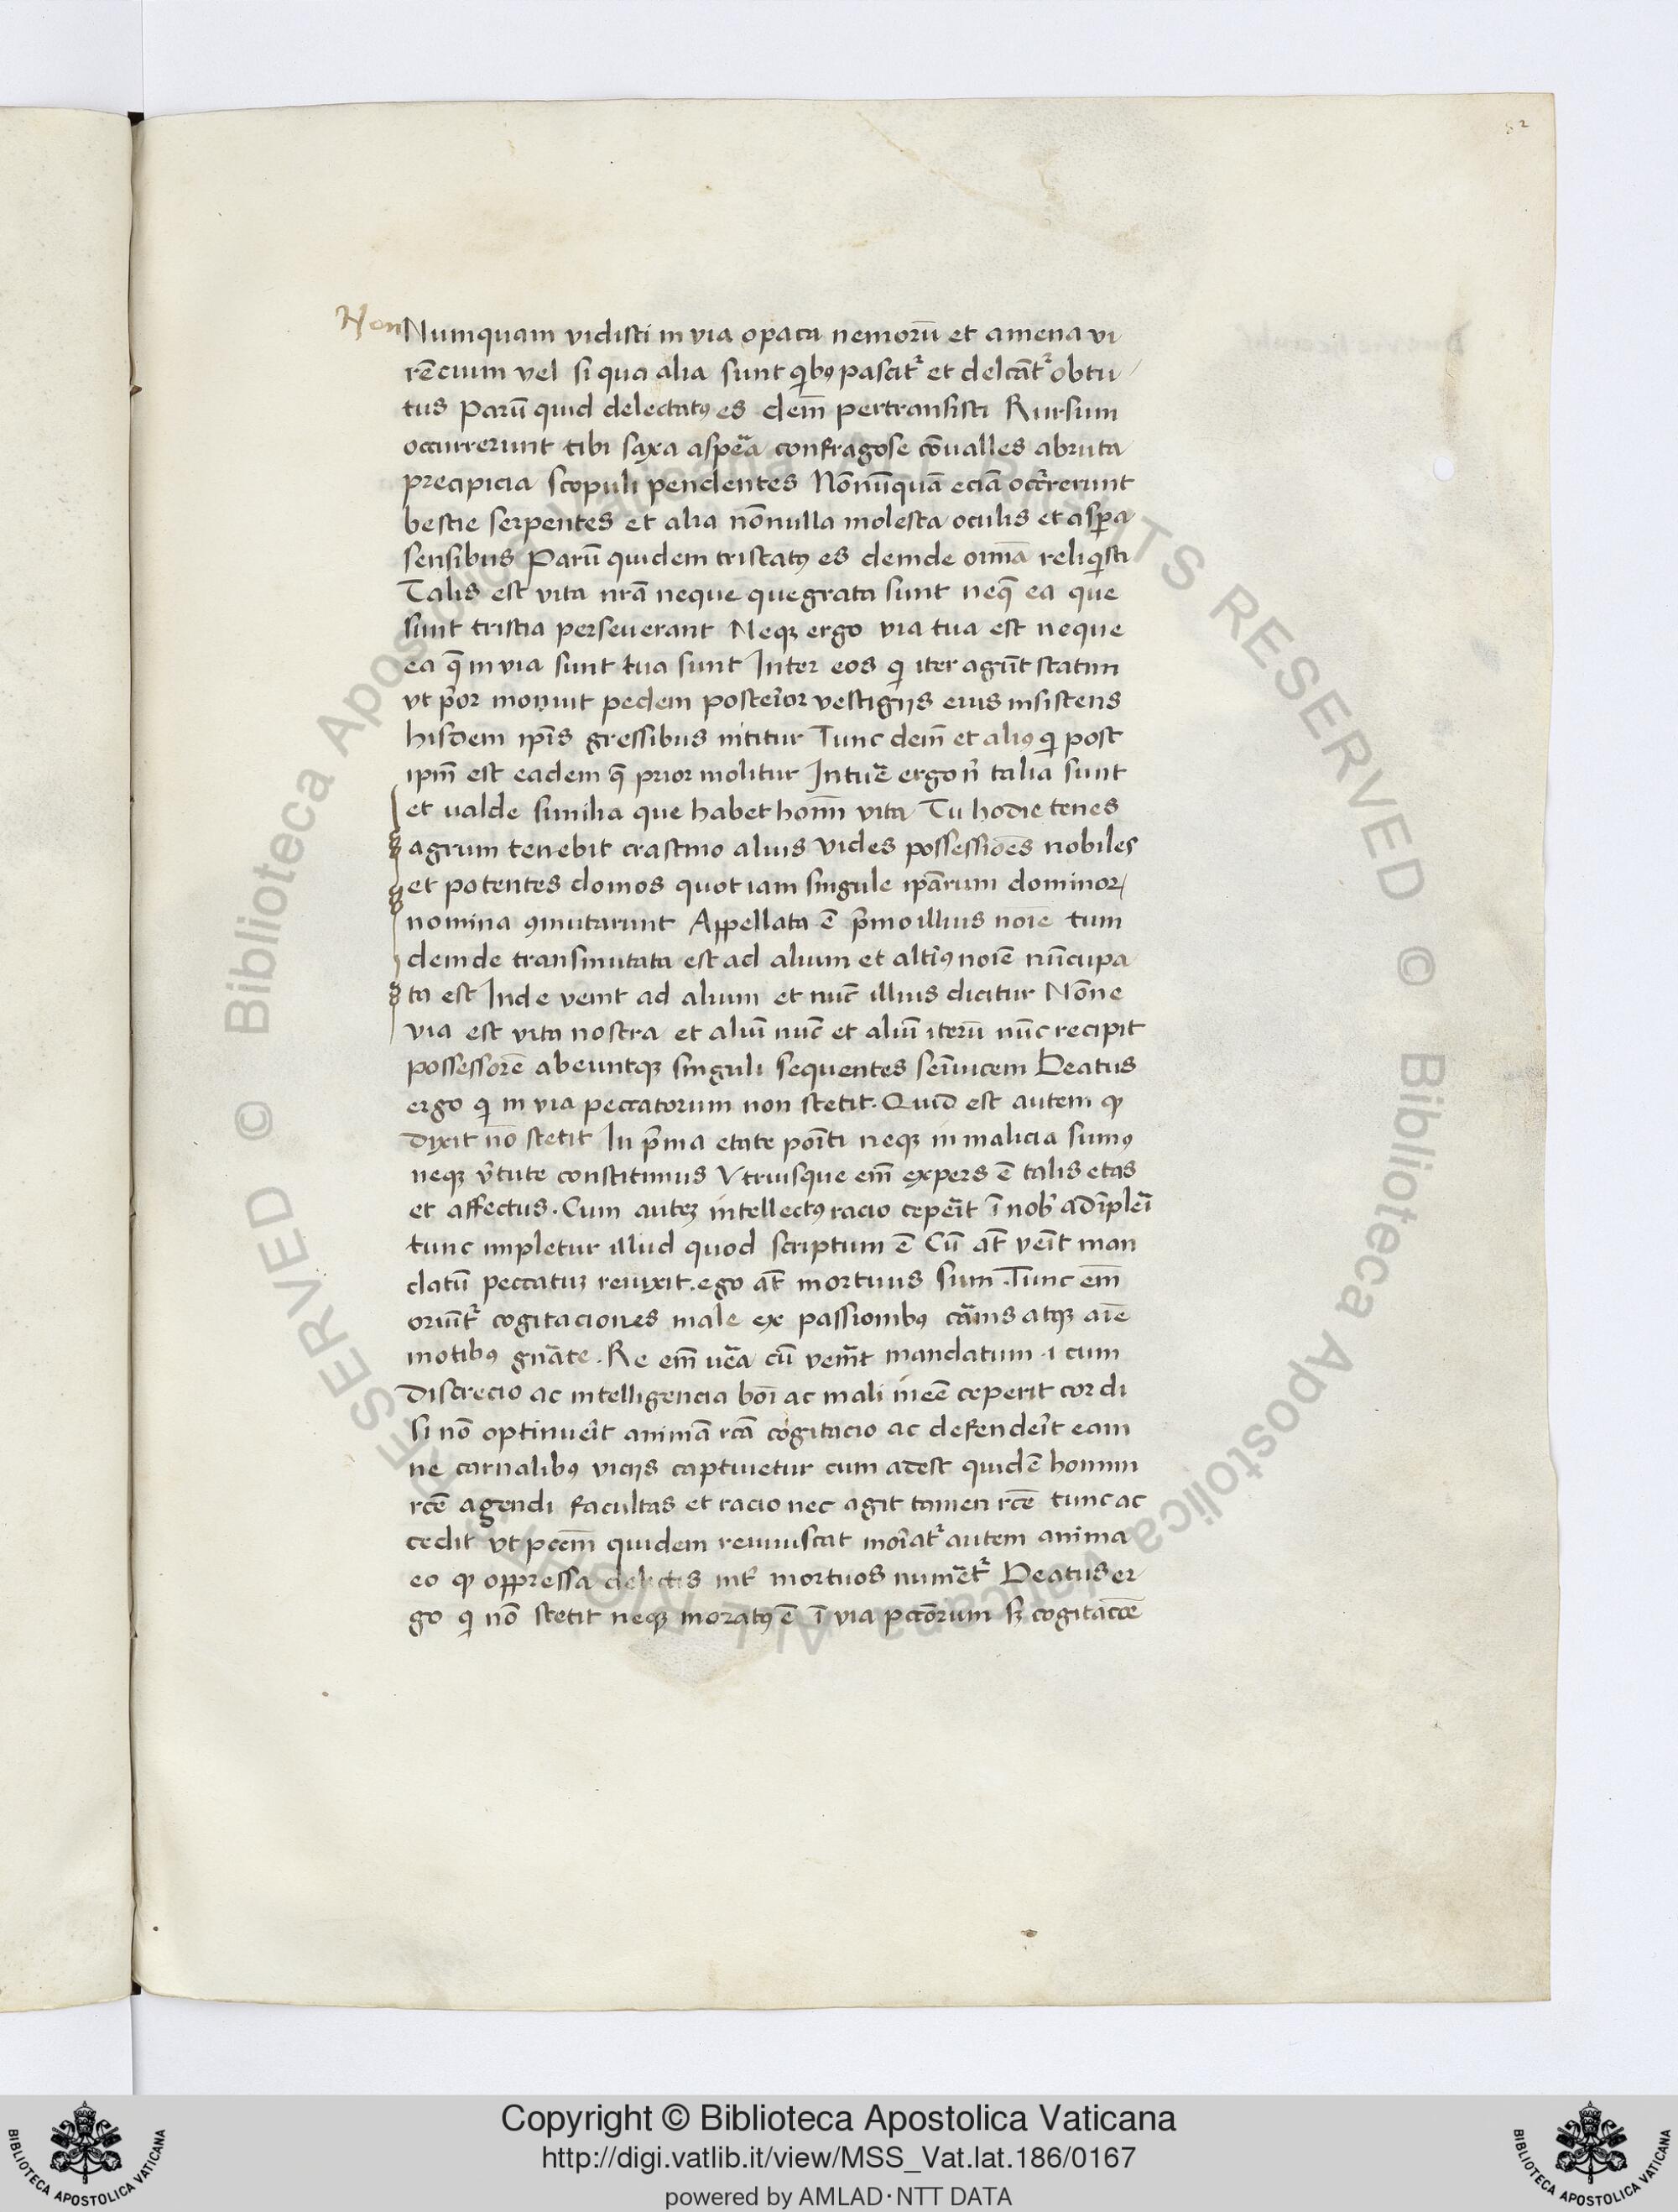 82
Non
Numquam vidisti in via opaca nemorū et amena vi
rēcium vel si qua alia sunt qibꝰ pascit᷑ et delcāt᷑ obtu
tus Parū quid delectatꝰ es dein̄ pertransisti Rursum
occurrerunt tibi saxa aspēa confragose cōualles abruta
precipicia scopuli pendentes Nōnūquā eciā occ̄rrerunt
bestie serpentes et alia nōnulla molesta oculis et asp̄a
sensibus Parū quidem tristatꝰ es deinde oīnia reliqisti
Talis est vita nrā neque que grata sunt neq̄ ea que
sunt tristia perseuerant Neqꝫ ergo via tua est neque
ea q̄ in via sunt tua sunt Inter eos qi iter agūt statim
vt p̄or monuit pedem posteīor vestigijs eius insistens
hisdem ip̄is gressibus nititur Tunc dein̄ et aliꝰ qi post
ipm̄ est eadem q̄ prior molitur Intuē ergo n̄ talia sunt
et ualde similia que habet homī vita Tu hodie tenes
agrum tenebit crastino alius Vides possessiōes nobiles
et potentes domos quot iam singule ip̄arum dominoꝝ
nomina ꝯmutarunt Appellata ē p̄mo illius noīe tum
deinde transmutata est ad alium et altīꝰ noīe nūcupa
ta est Inde venit ad alium et nūc illius dicitur Nōne
via est vita nostra et aliū nūc et aliū iterū nūc recipit
possessorē abeuntqꝫ singuli sequentes seīuicem Beatus
ergo qi in via peccatorum non stetit. Quid est autem ꝙ
dixit nō stetit In p̄ma etate poīti neqꝫ in malicia sumꝰ
neqꝫ v̄tute constitimus Vtriusque em̄ expers ē talis etas
et affectus. Cum auteꝫ intellectꝰ racio cepeīt ī nob᷑ adīpleī
tunc impletur illud quod scriptum ē Cū at̄ veīt man
datū peccatuꝫ reuixit. ego at̄ mortuus sum. Tunc em̄
oriūt᷑ cogitaciones male ex passionibꝰ cārnis atqꝫ aīe
motibꝰ gn̄ate. Re em̄ uēa cū venīt mandatum .i cum
discrecio ac intelligencia bonī ac mali ineē ceperit cordi
si nō optinueīt animā rcā cogitacio ac defendeīt eam
ne carnalibꝰ vicijs captiuetur cum adest quidē homini
rcē agendi facultas et racio nec agit tamen rcē tunc ac
cedit vt pccm̄ quidem reuiuiscat moīat᷑ autem anima
eo ꝙ oppressa delictis int᷑ mortuos numēt᷑ Beatus er
go qi nō stetit neqꝫ moratꝰ ē ī via pccōrum sꝫ cogitaccōe
Copyright © Biblioteca Apostolica Vaticana
http://digi.vatlib.it/view/MSS_Vat.lat.186/0167
powered by AMLAD·NTT DATA